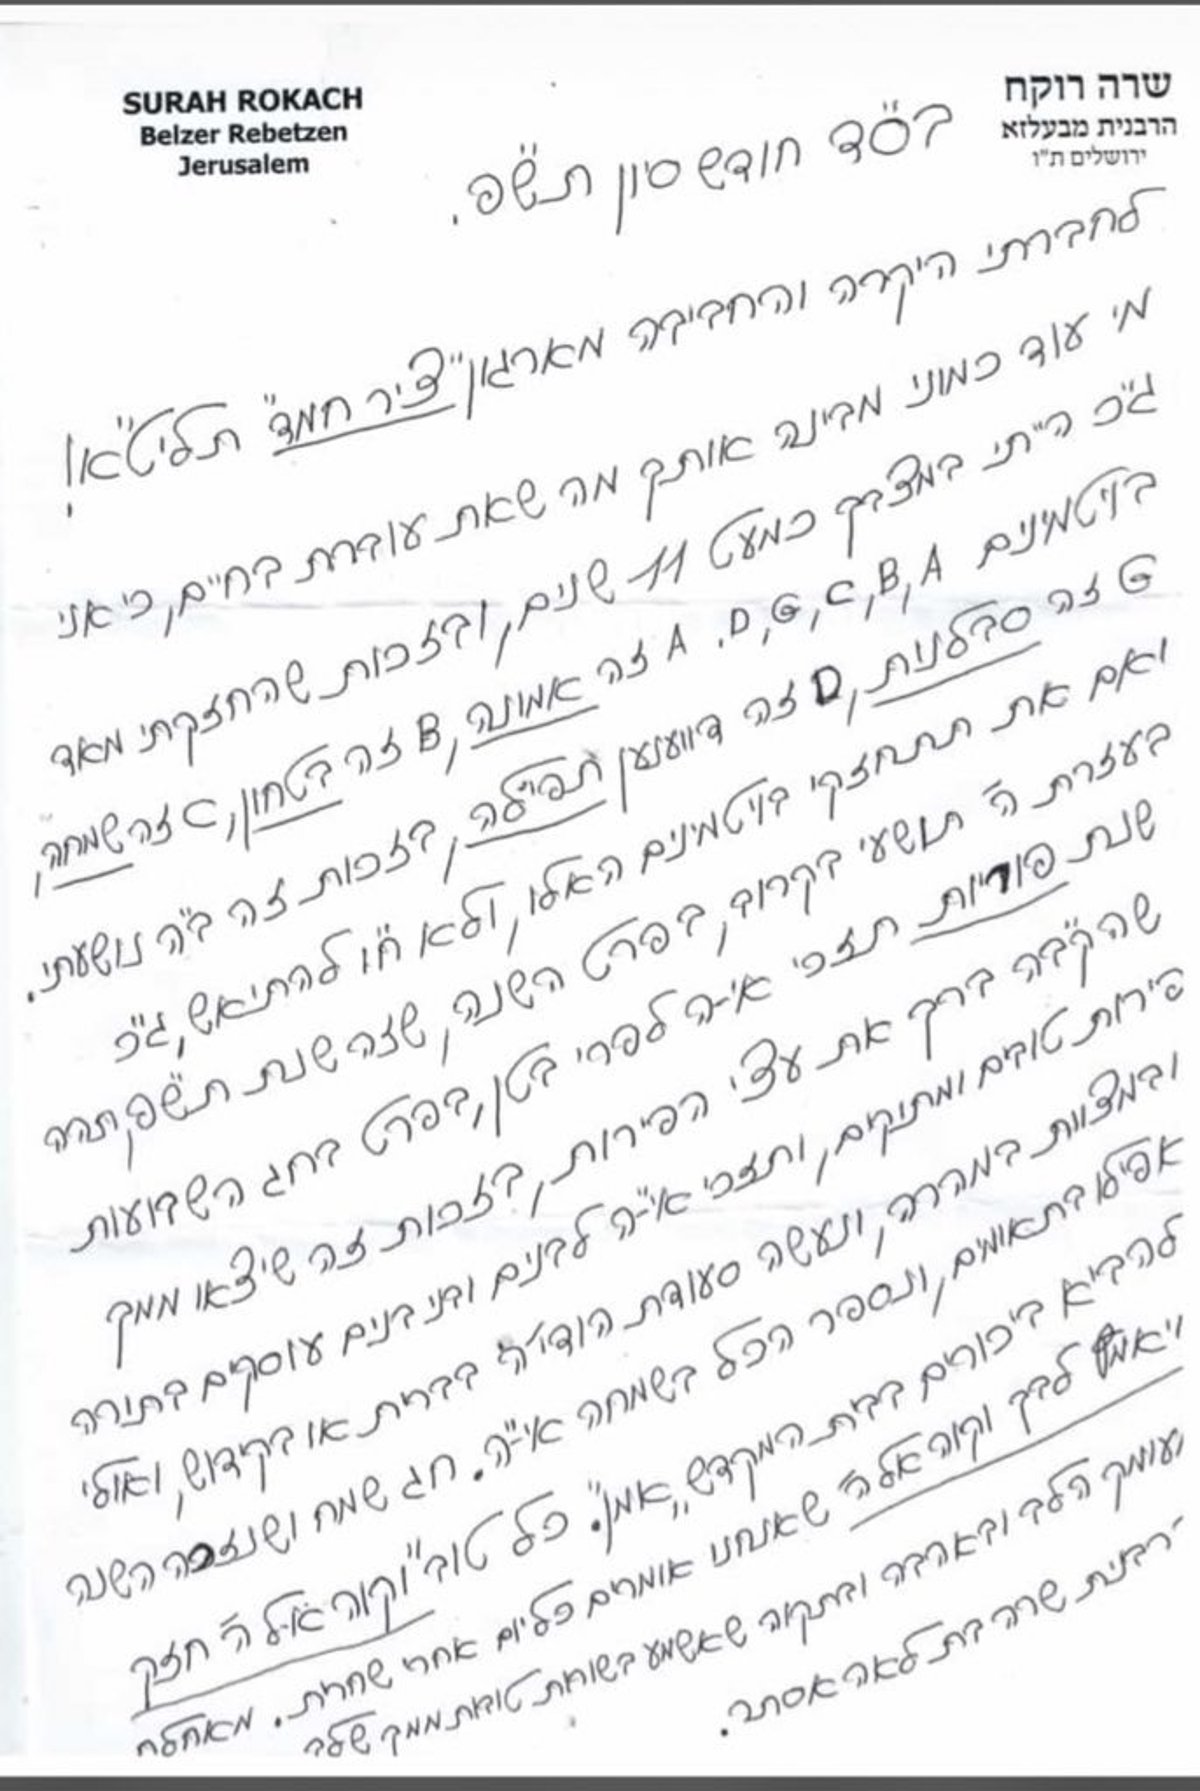 SURAH ROKACH
Belzer Rebetzen
Jerusalem
שרה רוקח
הרבנית מבעלזא
ירושלים ת"ו
בס"ד חודש סיון תש"פ.
לחברתי היקרה והחביבה מארגון "ציר חמד" תליט"א!
מי עוד כמוני מבינה אותך מה שאת עוברת בחיים, כי אני
ג"כ הייתי במצבך כמעט 11 שנים, ובזכות שהתחזקתי מאד
בויטמינים A, B, C, G, D. A זה אמונה, B זה בטחון, C זה שמחה,
G זה סבלנות, D זה דיווענען תפילה, בזכות זה ב"ה נושעתי.
ואם את תתחזקי בויטמינים האלו, ולא ח"ו להתיאש, ג"כ
בעזרת ה' תושעי בקרוב, בפרט השנה, שזה שנת תש"פ, תהה
שנת פוריות תזכי אי"ה לפרי בטן, בפרט בחג השבועות
שהקב"ה ברך את עצי הפירות, בזכות זה שיצאו ממך
פירות טובים ומתוקים, ותזכי אי"ה לבנים ובני בנים עוסקים בתורה
ובמצוות במהרה, ונעשה סעודת הודי'ה בברית או בקידוש, ואולי
אפילו בתאומים, ונספר הכל בשמחה אי"ה. חג שמח ושנזכה השנה
להביא ביכורים בבית המקדש "אמן". כל טוב "וקוה א-ל ה' חזק
ויאמץ לבך וקוה אל ה' שאנחנו אומרים כל יום אחרי שחרית. מאחלת
מעומק הלב ובאהבה ובתקוה שאשמע בשורות טובות ממך
רבנית שרה בת לאה אסתר.